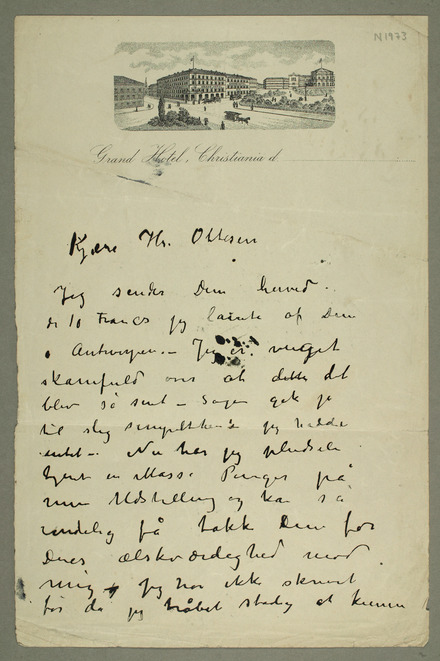 N1973
Grand Hotel, Christiania d
Kjære Hr. Ottesen
Jeg sender Dem herved
de 10 Francs jeg laante af Dem
i Antwerpen – Jeg er meget
skamfuld over at dette
blev så sent – Sagen gik jo
til slig simpelthen jeg havde
intet – Nu har jeg pludselig
tjent en Masse Penge på
min Udstilling og kan så
endelig få takk Dem for
Deres elskværdeghed mod
mig Jeg har ikke skrevet
før da jeg håbet stadig at kunne